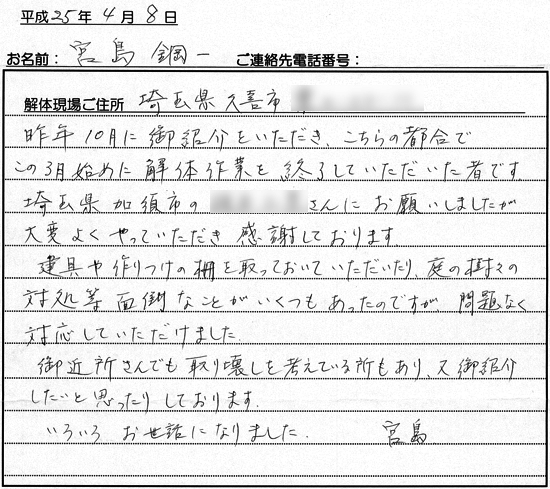 平成25年4月8日
お名前: 宮島 鋼一 ご連絡先電話番号:
解体現場ご住所 埼玉県久喜市
昨年10月に御紹介をいただき、こちらの都合で
この3月始めに解体作業を終了していただいた者です。
埼玉県加須市の さんにお願いしましたが
大変よくやっていただき感謝しております。
建具や作りつけの棚を取っておいていただいたり、庭の樹々の
対処等面倒なことがいくつもあったのですが、問題なく
対応していただけました
御近所さんでも取り壊しを考えている所もあり、又御紹介
したいと思ったりしております。
いろいろお世話になりました. 宮島